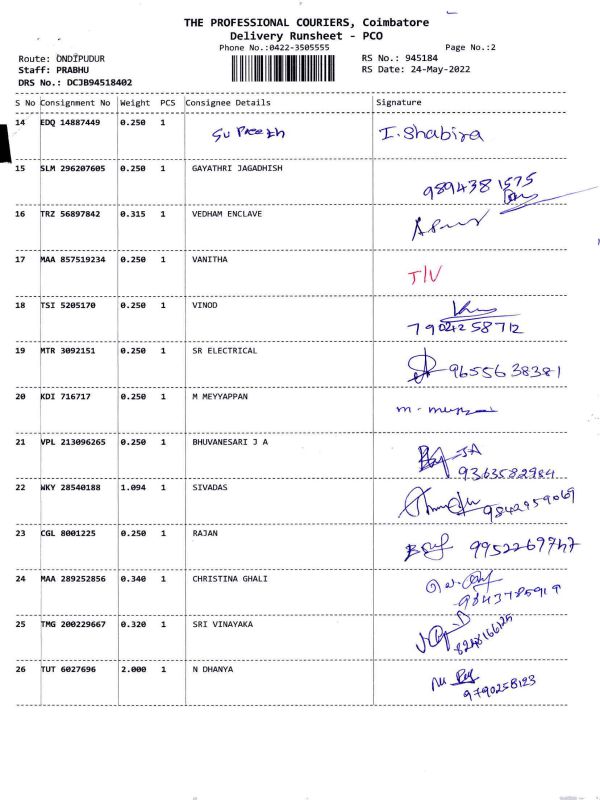 THE PROFESSIONAL COURIERS, Coimbatore
Delivery Runsheet - PCO
Phone No.:0422-3505555
Page No.:2
Route: ONDIPUDUR
RS No.: 945184
Staff: PRABHU
RS Date: 24-May-2022
DRS No.: DCJB94518402
S No Consignment No Weight PCS Consignee Details Signature
14 EDQ 14887449 0.250 1 Supreeth I. Shabira
15 SLM 296207605 0.250 1 GAYATHRI JAGADHISH
9894381575
16 TRZ 56897842 0.315 1 VEDHAM ENCLAVE
17 MAA 857519234 0.250 1 VANITHA
T/V
18 TSI 5205170 0.250 1 VINOD
7904258712
19 MTR 3092151 0.250 1 SR ELECTRICAL
9655638381
20 KDI 716717 0.250 1 M MEYYAPPAN
21 VPL 213096265 0.250 1 BHUVANESARI J A
JA
9363582984
22 WKY 28540188 1.094 1 SIVADAS
9842959069
23 CGL 8001225 0.250 1 RAJAN
9952269747
24 MAA 289252856 0.340 1 CHRISTINA GHALI
9843785919
25 TMG 200229667 0.320 1 SRI VINAYAKA
8248166125
26 TUT 6027696 2.000 1 N DHANYA
9790258123